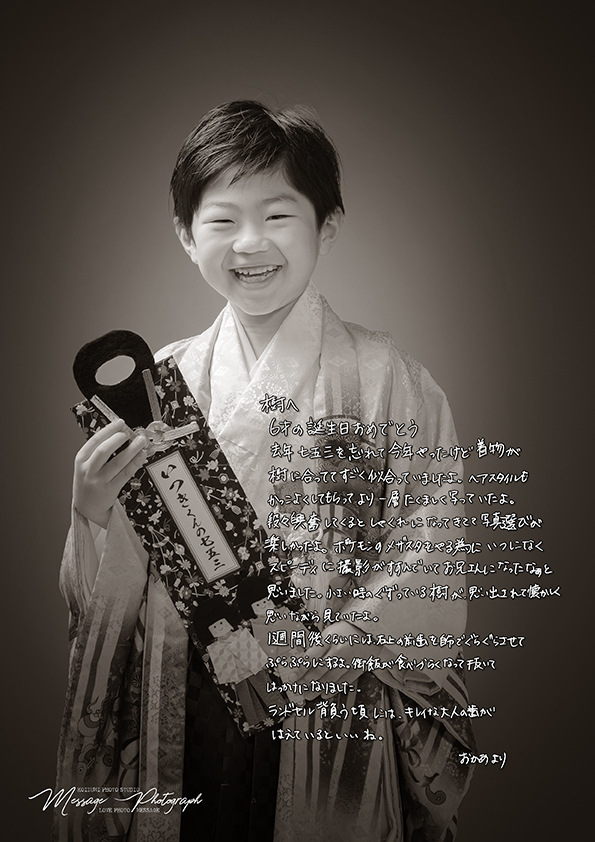 いつきくんの七五三
樹へ
6才の誕生日おめでとう
去年七五三を忘れて今年やったけど着物が
樹に合っててすごく似合っていましたよ。ヘアスタイルも
かっこよくしてもらってより一層たくましく写っていたよ。
段々興奮してくるとしゃくれになってきてて写真選びが
楽しかったよ。ポケモンのメザスタをやる為にいつになく
スピーディに撮影がすすんでいてお兄さんになったなぁと
思いました。小さい時のぐずっている樹が、思い出されて懐かしく
思いながら見ていたよ。
1週間後くらいには、右上の前歯を師でぐらぐらさせて
ぷらぷらにするよ。御飯が食べづらくなって抜いて
はっかけになりました。
ランドセル背負う頃には、キレイな大人の歯が
はえているといいね。
おかめより
KOIZUMI PHOTO STUDIO
Message Photograph
LOVE PHOTO MESSAGE